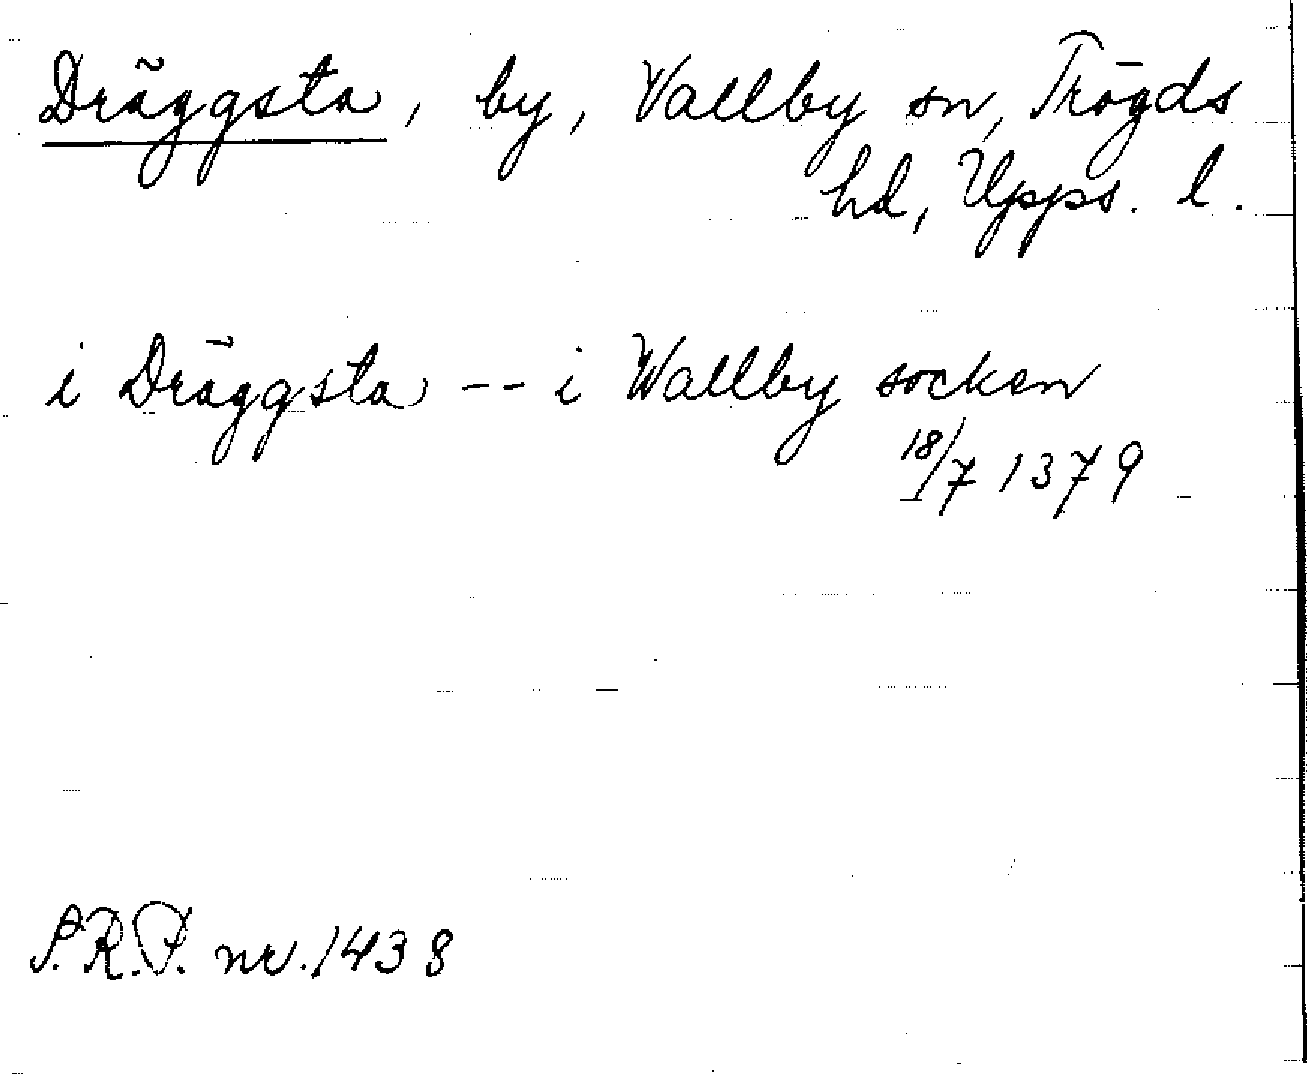 Dräggsta, by, Vallby sn, Trögds
hd, Upps. l.
i Dräggsta -- i Wallby socken
18/7 1379
S.R.P. nr. 1438